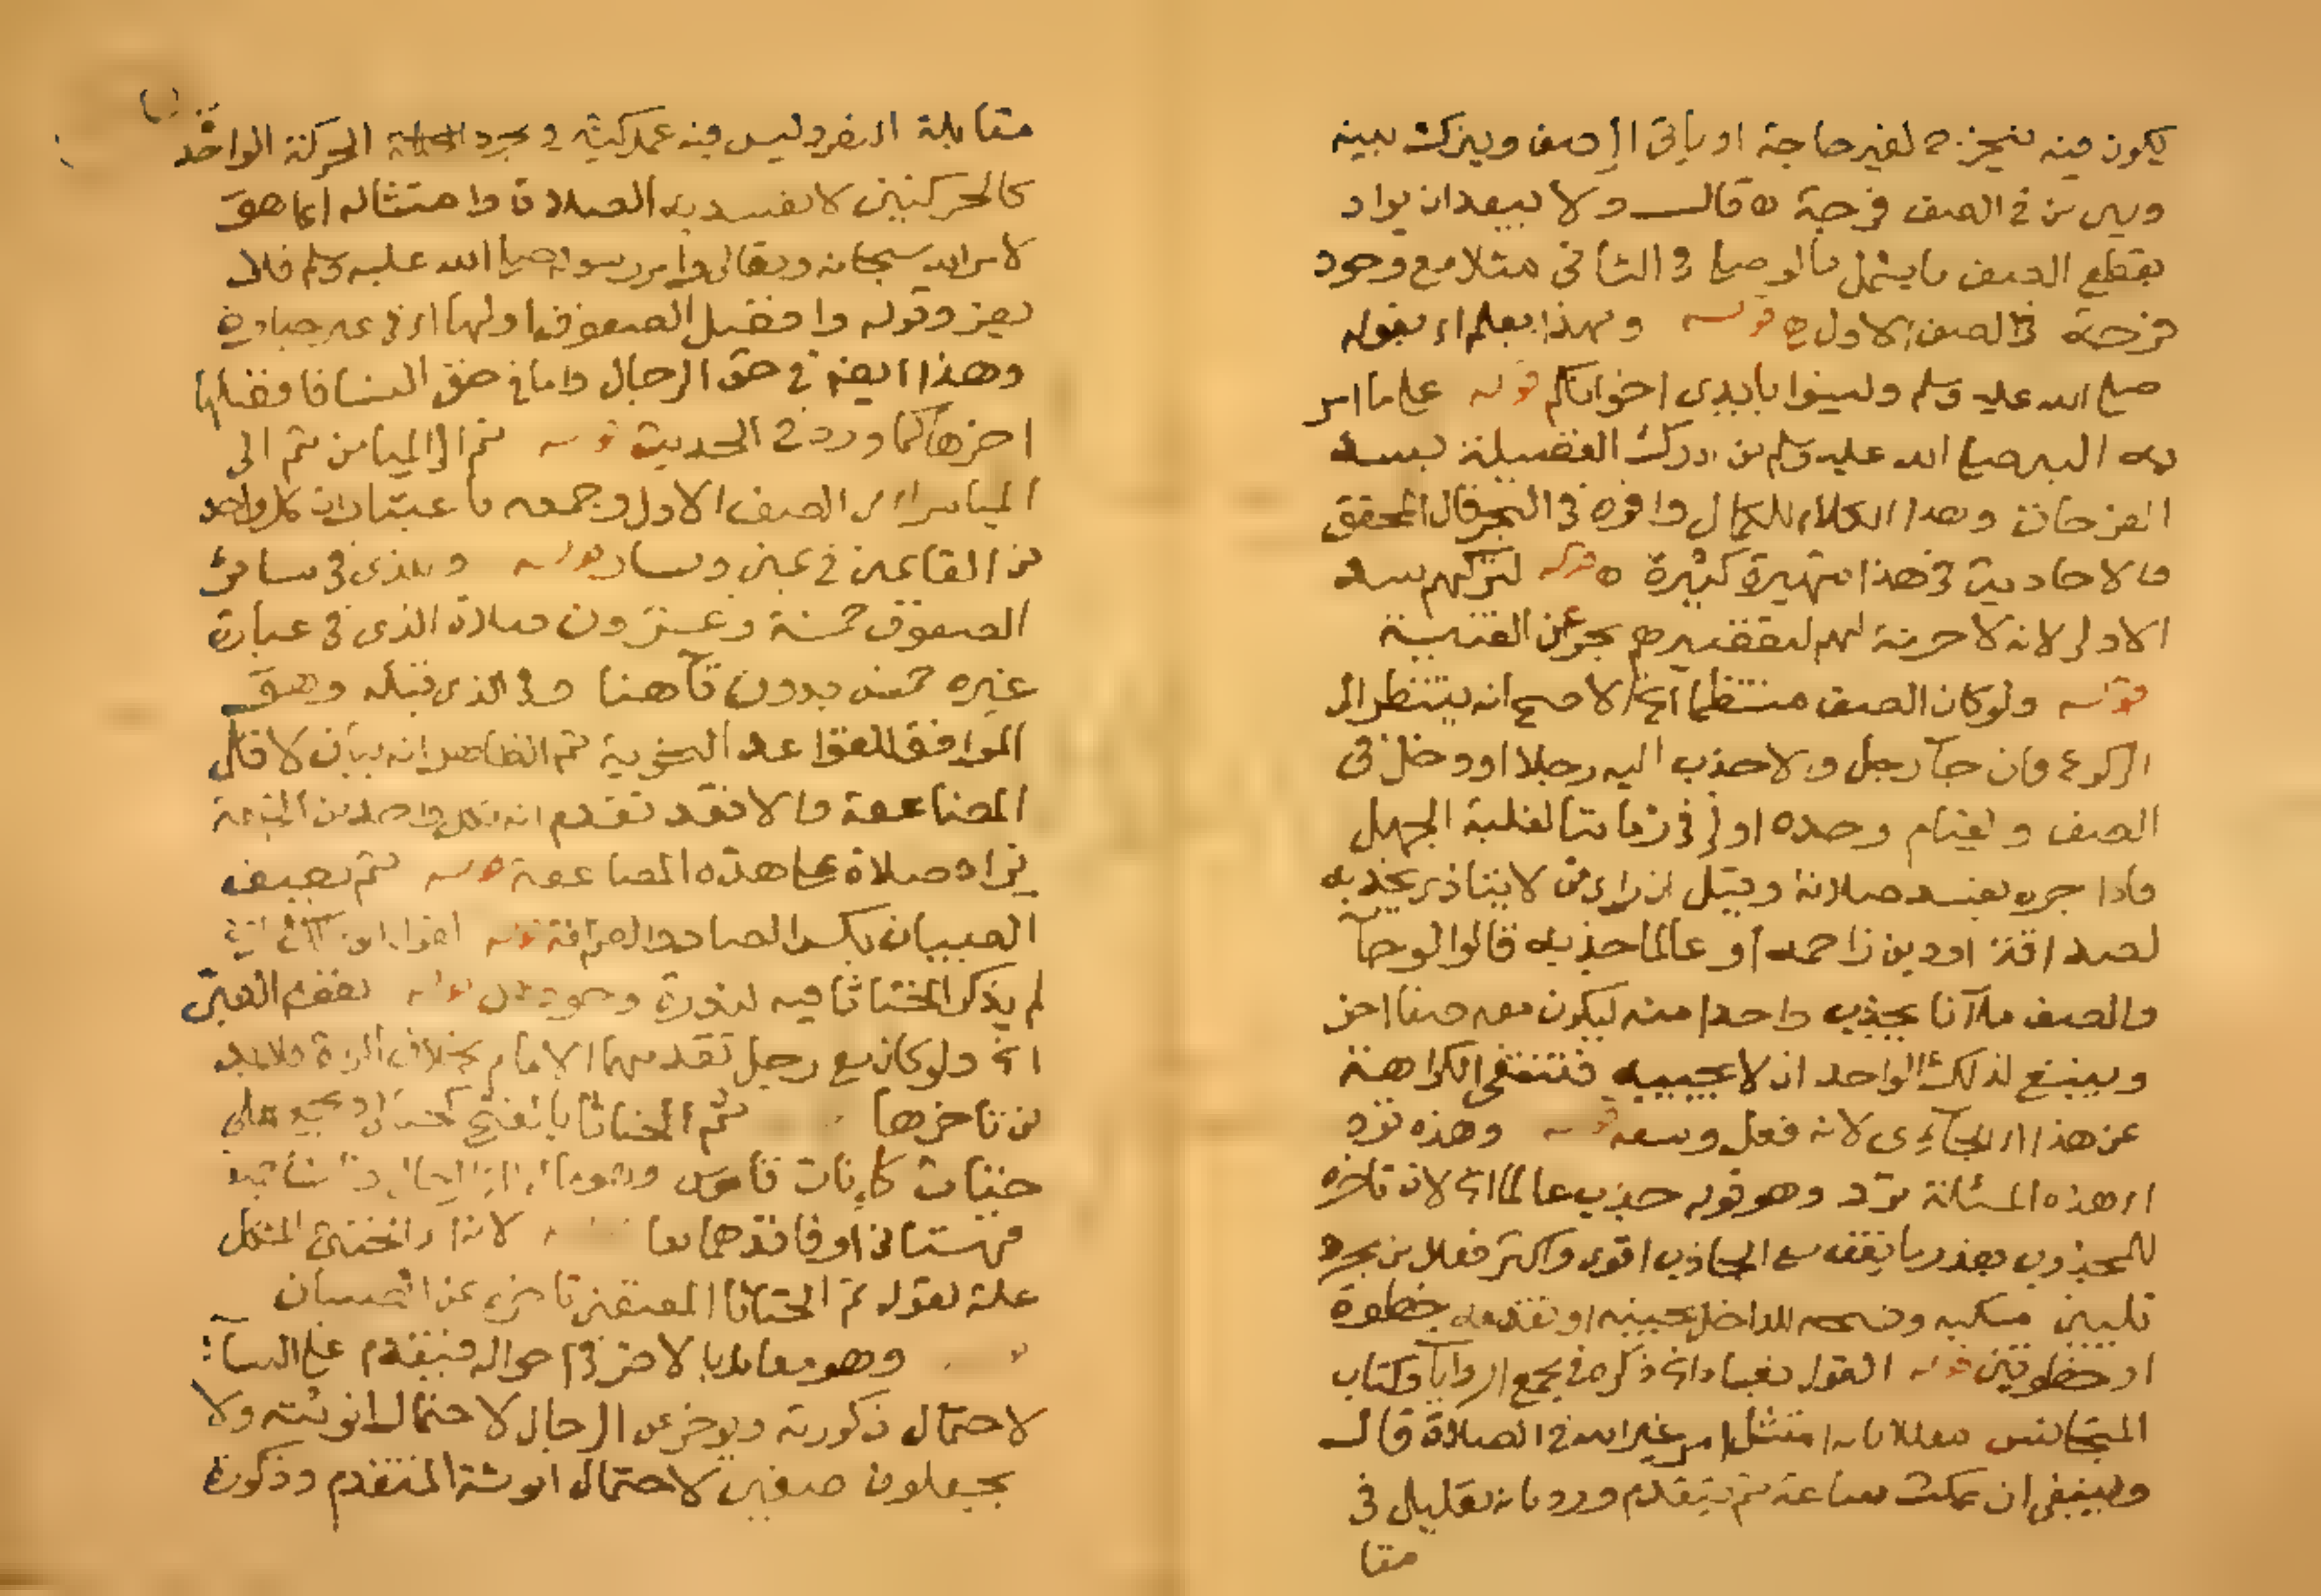 يكون فيه فيجزه لغير حاجة او ياتي الصف ويترك بينه
وبين من في الصف فرجة ه قال ولا يبعد ان يراد
بقطع الصف ما يشمل ما لو صلى في الثاني مثلا مع وجود
فرجة في الصف الاول ه قوله وبهذا يعلم اي بقوله
صلى الله عليه وسلم ولينوا بايدي اخوانكم قوله على ما امر
به النبي صلى الله عليه وسلم من ادرك الفضيلة بسد
الفرجات وهذا الكلام للكمال واقره في البحر قال المحقق
والاحاديث في هذا شهيرة كثيرة ه قوله لتركهم سد
الاول لانه لا حرمة لهم لتقصيرهم بحر عن القنية
قوله ولو كان الصف منتظما الخ الاصح انه ينتظر الى
الركوع فان جآ رجل والا جذب اليه رجلا او دخل في
الصف والقيام وحده اولى في زماننا لغلبة الجهل
فاذا جره تفسد صلاته وقيل ان راى من لا يتاذى بجذبه
لصداقة او دين زاحمه او عالما جذبه قالوا لو جآ
والصف ملآن يجذب واحدا منه ليكون معه صفا اخر
وينبغي لذلك الواحد ان لا يجيبه فتنتفي الكراهة
عن هذا الجآءي لانه فعل وسعه قوله وهذه ترد
اي هذه المسئلة ترد وهو قوله جذب عالما الخ لان تاخره
للمجذوب بعذر ما يقف مع الجاذب اقوى واكثر فعلا من مجرد
تليين منكبيه وفسحه للداخل بجنبه او تقدمه خطوة
او خطوتين قوله القول بفساد الخ ذكره في مجمع الروايات وكتاب
المتجانس معللا بانه امتثل امر غير الله في الصلاة قال
وينبغي ان يمكث ساعة ثم يتقدم ورد بانه تعليل في
مقا
مقابلة النص وليس فيه عمل كثير و مجرد الحركة الواحدة
كالحركتين لا تفسد به الصلاة وامتثاله انما هو
لامر الله سبحانه وتعالى وامر رسوله صلى الله عليه وسلم فلا
يضر وقوله وافضل الصفوف اولها اي في غير جنازة
وهذا ايضا في حق الرجال واما في حق النسا فافضلها
اخرها كما ورد في الحديث قوله ثم الى الميامن ثم الى
المياسر اي من الصف الاول وجمعه باعتبار ان كل واحد
من القائمين في يمين ويسار قوله وللذي في سائر
الصفوف خمسة وعشرون صلاة الذي في عبارة
غيره خمس بدون تآ هنا وفي الذي قبله وهو
الموافق للقواعد النحوية ثم الظاهر انه بيان لاقل
المضاعفة والا فقد تقدم انه لكل واحد من
يزاد صلاة على هذه المضاعفة قوله ثم يصف
الصبيان بكسر الصاد قوله
لم يذكر الخناثا فيه لندرة وجوده قوله يقف الصبي
الخ ولو كان مع رجل تقدمهما الامام بخلاف المراة فلا بد
من تاخرها ثم الخناثا بالفتح ويجمع على
خناث كاناث قاموس
قهستاني او فاقدهما معا لان الخنثى المشكل
علة لقوله ثم الخناثا المقتضي تاخره عن الصبيان
وهو معامل بالاضر في احواله فيتقدم على النسآ
لاحتمال ذكورته ويؤخر عن الرجال لاحتمال انوثته ولا
يجعلون صفين لاحتمال انوثة المتقدم وذكورة